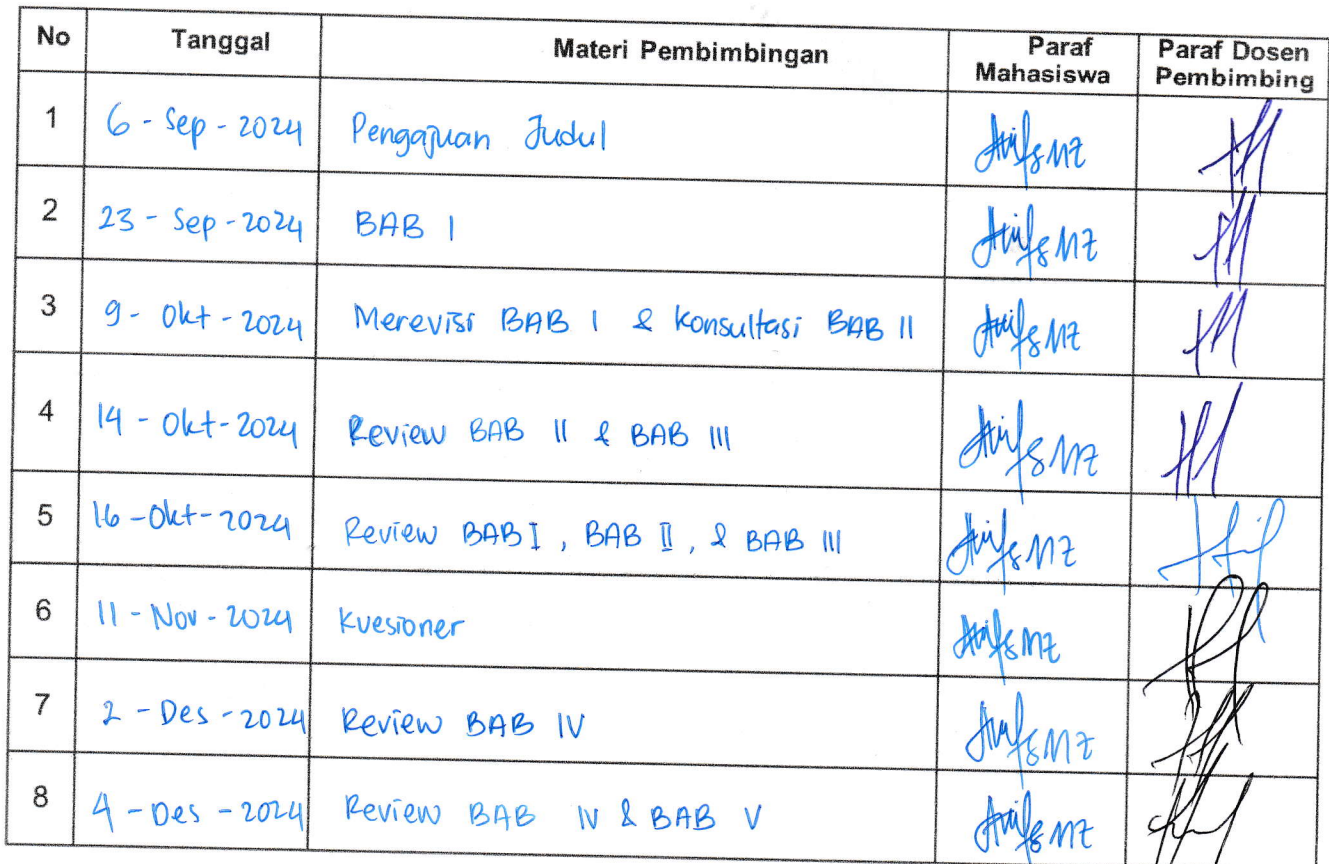 No Tanggal Materi Pembimbingan Paraf Mahasiswa Paraf Dosen Pembimbing
1 6 - Sep - 2024 Pengajuan Judul
2 23 - Sep - 2024 BAB I
3 9 - Okt - 2024 Merevisi BAB I & Konsultasi BAB II
4 14 - Okt - 2024 Review BAB II & BAB III
5 16 - Okt - 2024 Review BAB I, BAB II, & BAB III
6 11 - Nov - 2024 Kuesioner
7 2 - Des - 2024 Review BAB IV
8 4 - Des - 2024 Review BAB IV & BAB V